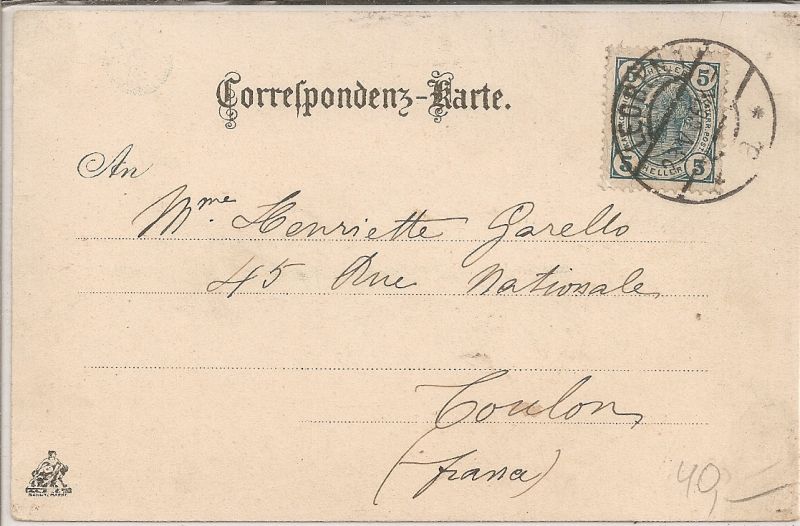 Correspondenz-Karte.
5 5
HELLER
5 5
An
Mme. Henriette Garello
45 Rue Nationale
Toulon
(franca)
40,—